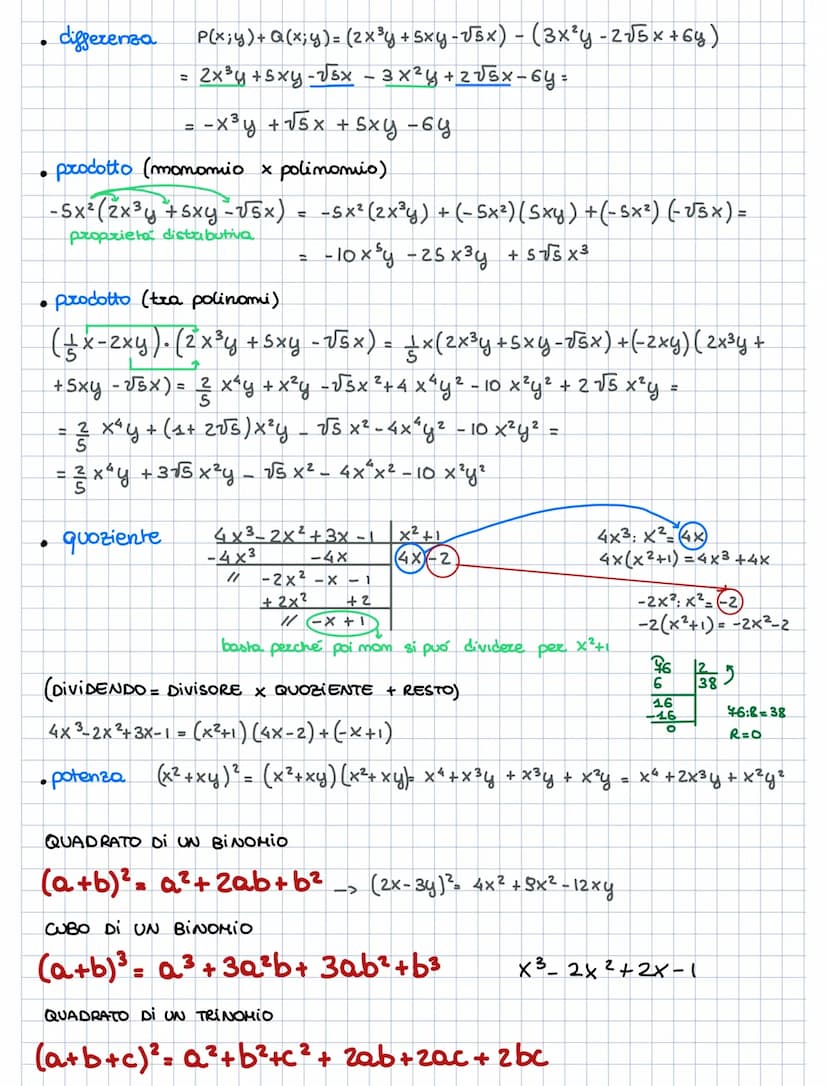 • differenza P(x;y)+Q(x;y)=(2x³y+5xy-√5x) - (3x²y-2√5x+6y)
= 2x³y+5xy-√5x - 3x²y+2√5x-6y=
= -x³y +√5x + 5xy -6y
• prodotto (monomio x polinomio)
-5x²(2x³y +5xy -√5x) = -5x²(2x³y) + (-5x²)(5xy) +(-5x²)(-√5x)=
proprietá distributiva
= -10x⁵y -25x³y + 5√5x³
• prodotto (tra polinomi)
(1/5x-2xy)·(2x³y +5xy -√5x) = 1/5x(2x³y+5xy-√5x)+(-2xy)(2x³y+
+5xy -√5x)= 2/5 x⁴y + x²y -√5x²+4x⁴y² - 10 x²y² + 2√5 x²y =
= 2/5 x⁴y + (1+ 2√5)x²y - √5 x² - 4x⁴y² - 10 x²y² =
= 2/5 x⁴y + 3√5 x²y - √5 x² - 4x⁴x² - 10 x²y²
• quoziente 4x³-2x²+3x-1 x²+1 4x³: x²= 4x
-4x³ -4x 4x-2 4x(x²+1)=4x³+4x
// -2x² -x -1
+2x² +2 -2x²: x²= -2
// -x+1 -2(x²+1)= -2x²-2
basta perché poi non si puó dividere per x²+1
76 2
6 38
16
-16 76:2=38
0 R=0
(DIVIDENDO = DIVISORE x QUOZIENTE + RESTO)
4x³-2x²+3x-1 = (x²+1)(4x-2)+(-x+1)
• potenza (x²+xy)²= (x²+xy)(x²+xy)= x⁴+x³y + x³y + x²y = x⁴+2x³y+x²y²
QUADRATO DI UN BINOMIO
(a+b)²= a²+2ab+b² -> (2x-3y)²= 4x²+9x²-12xy
CUBO DI UN BINOMIO
(a+b)³= a³+3a²b+3ab²+b³ x³-2x²+2x-1
QUADRATO DI UN TRINOMIO
(a+b+c)²= a²+b²+c²+2ab+2ac+2bc